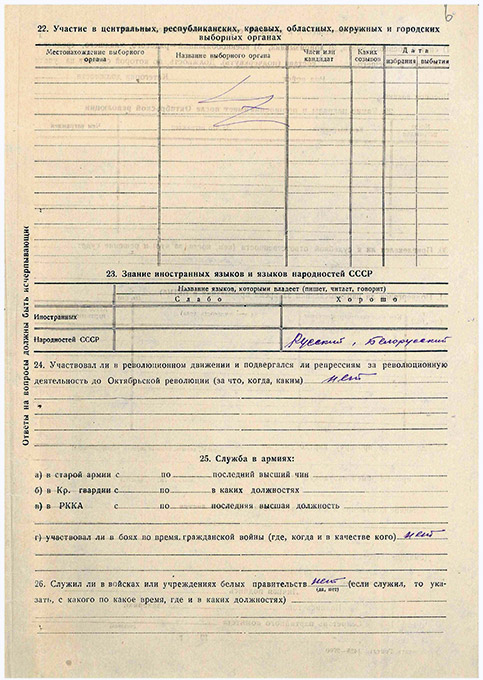 6
22. Участие в центральных, республиканских, краевых, областных, окружных и городских
выборных органах
Местонахождение выборного органа
Название выборного органа
Член или кандидат
Каких созывов
Дата
избрания
выбытия
23. Знание иностранных языков и языков народностей СССР
Название языков, которыми владеет (пишет, читает, говорит)
Слабо
Хорошо
Иностранных
Народностей СССР
Русский, Белорусский
24. Участвовал ли в революционном движении и подвергался ли репрессиям за революционную
деятельность до Октябрьской революции (за что, когда, каким) нет
25. Служба в армиях:
а) в старой армии с по последний высший чин
б) в Кр. гвардии с по в каких должностях
в) в РККА с по последняя высшая должность
г) участвовал ли в боях во время гражданской войны (где, когда и в качестве кого) нет
26. Служил ли в войсках или учреждениях белых правительств нет (если служил, то ука-
(да, нет)
зать, с какого по какое время, где и в каких должностях)
Ответы на вопросы должны быть исчерпывающие